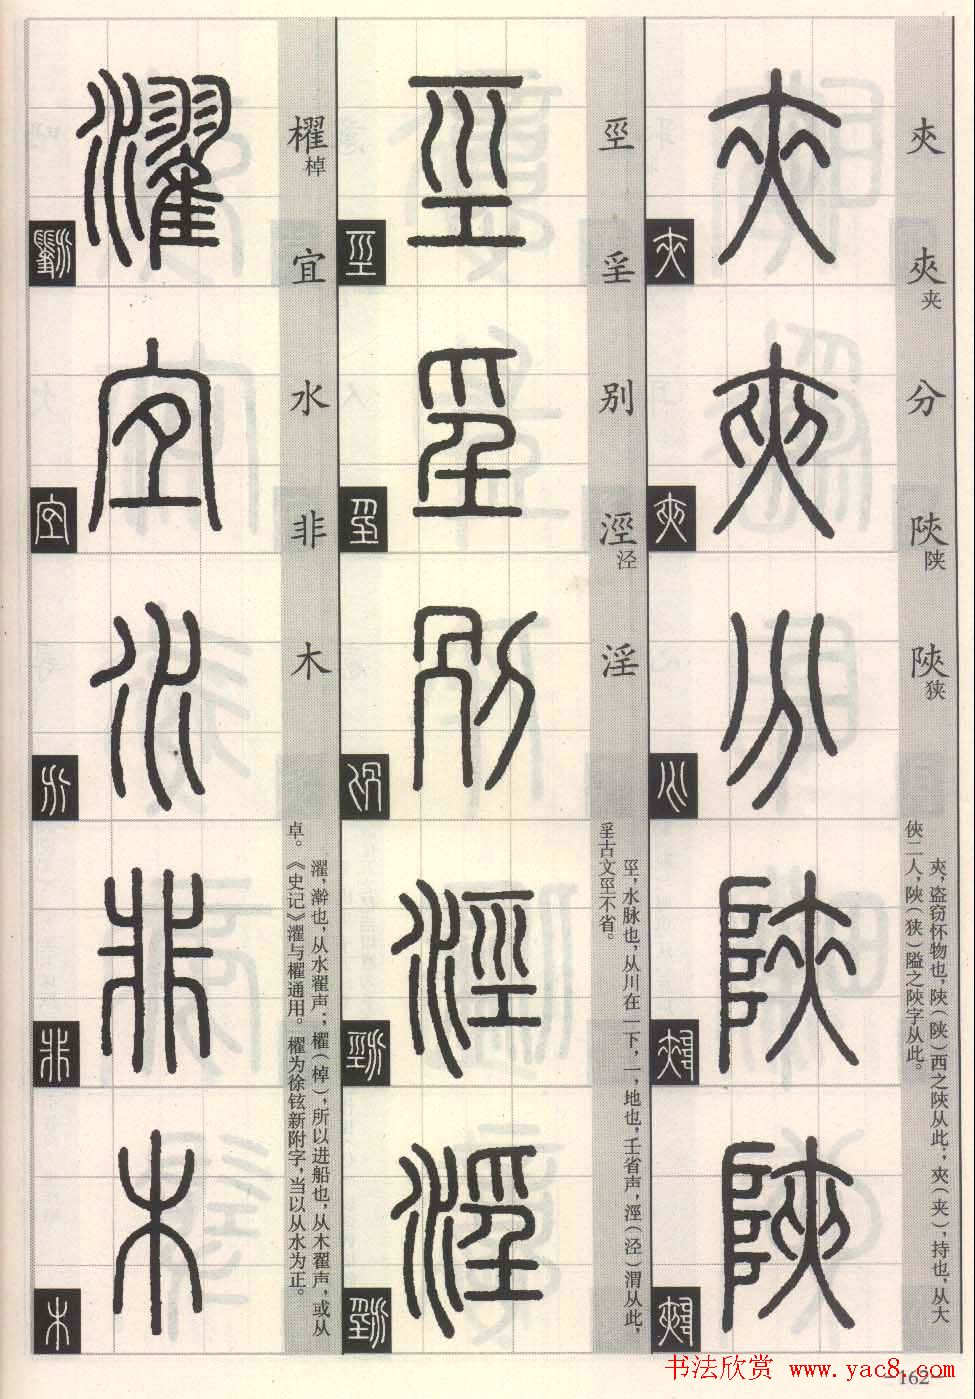 夾
夾夹
分
陝陕
陜狭
夾，盗窃怀物也，陝（陕）西之陝从此；夾（夹），持也，从大
俠二人，陜（狭）隘之陜字从此。
巠
别
涇泾
淫
巠，水脉也，从川在一下，一，地也，壬省声，涇（泾）渭从此，
古文巠不省。
櫂棹
宜
水
非
木
濯，澣也，从水翟声；櫂（棹），所以进船也，从木翟声，或从
卓。《史记》濯与櫂通用。櫂为徐铉新附字，当以从水为正。
书法欣赏 www.yac8.com
—162—